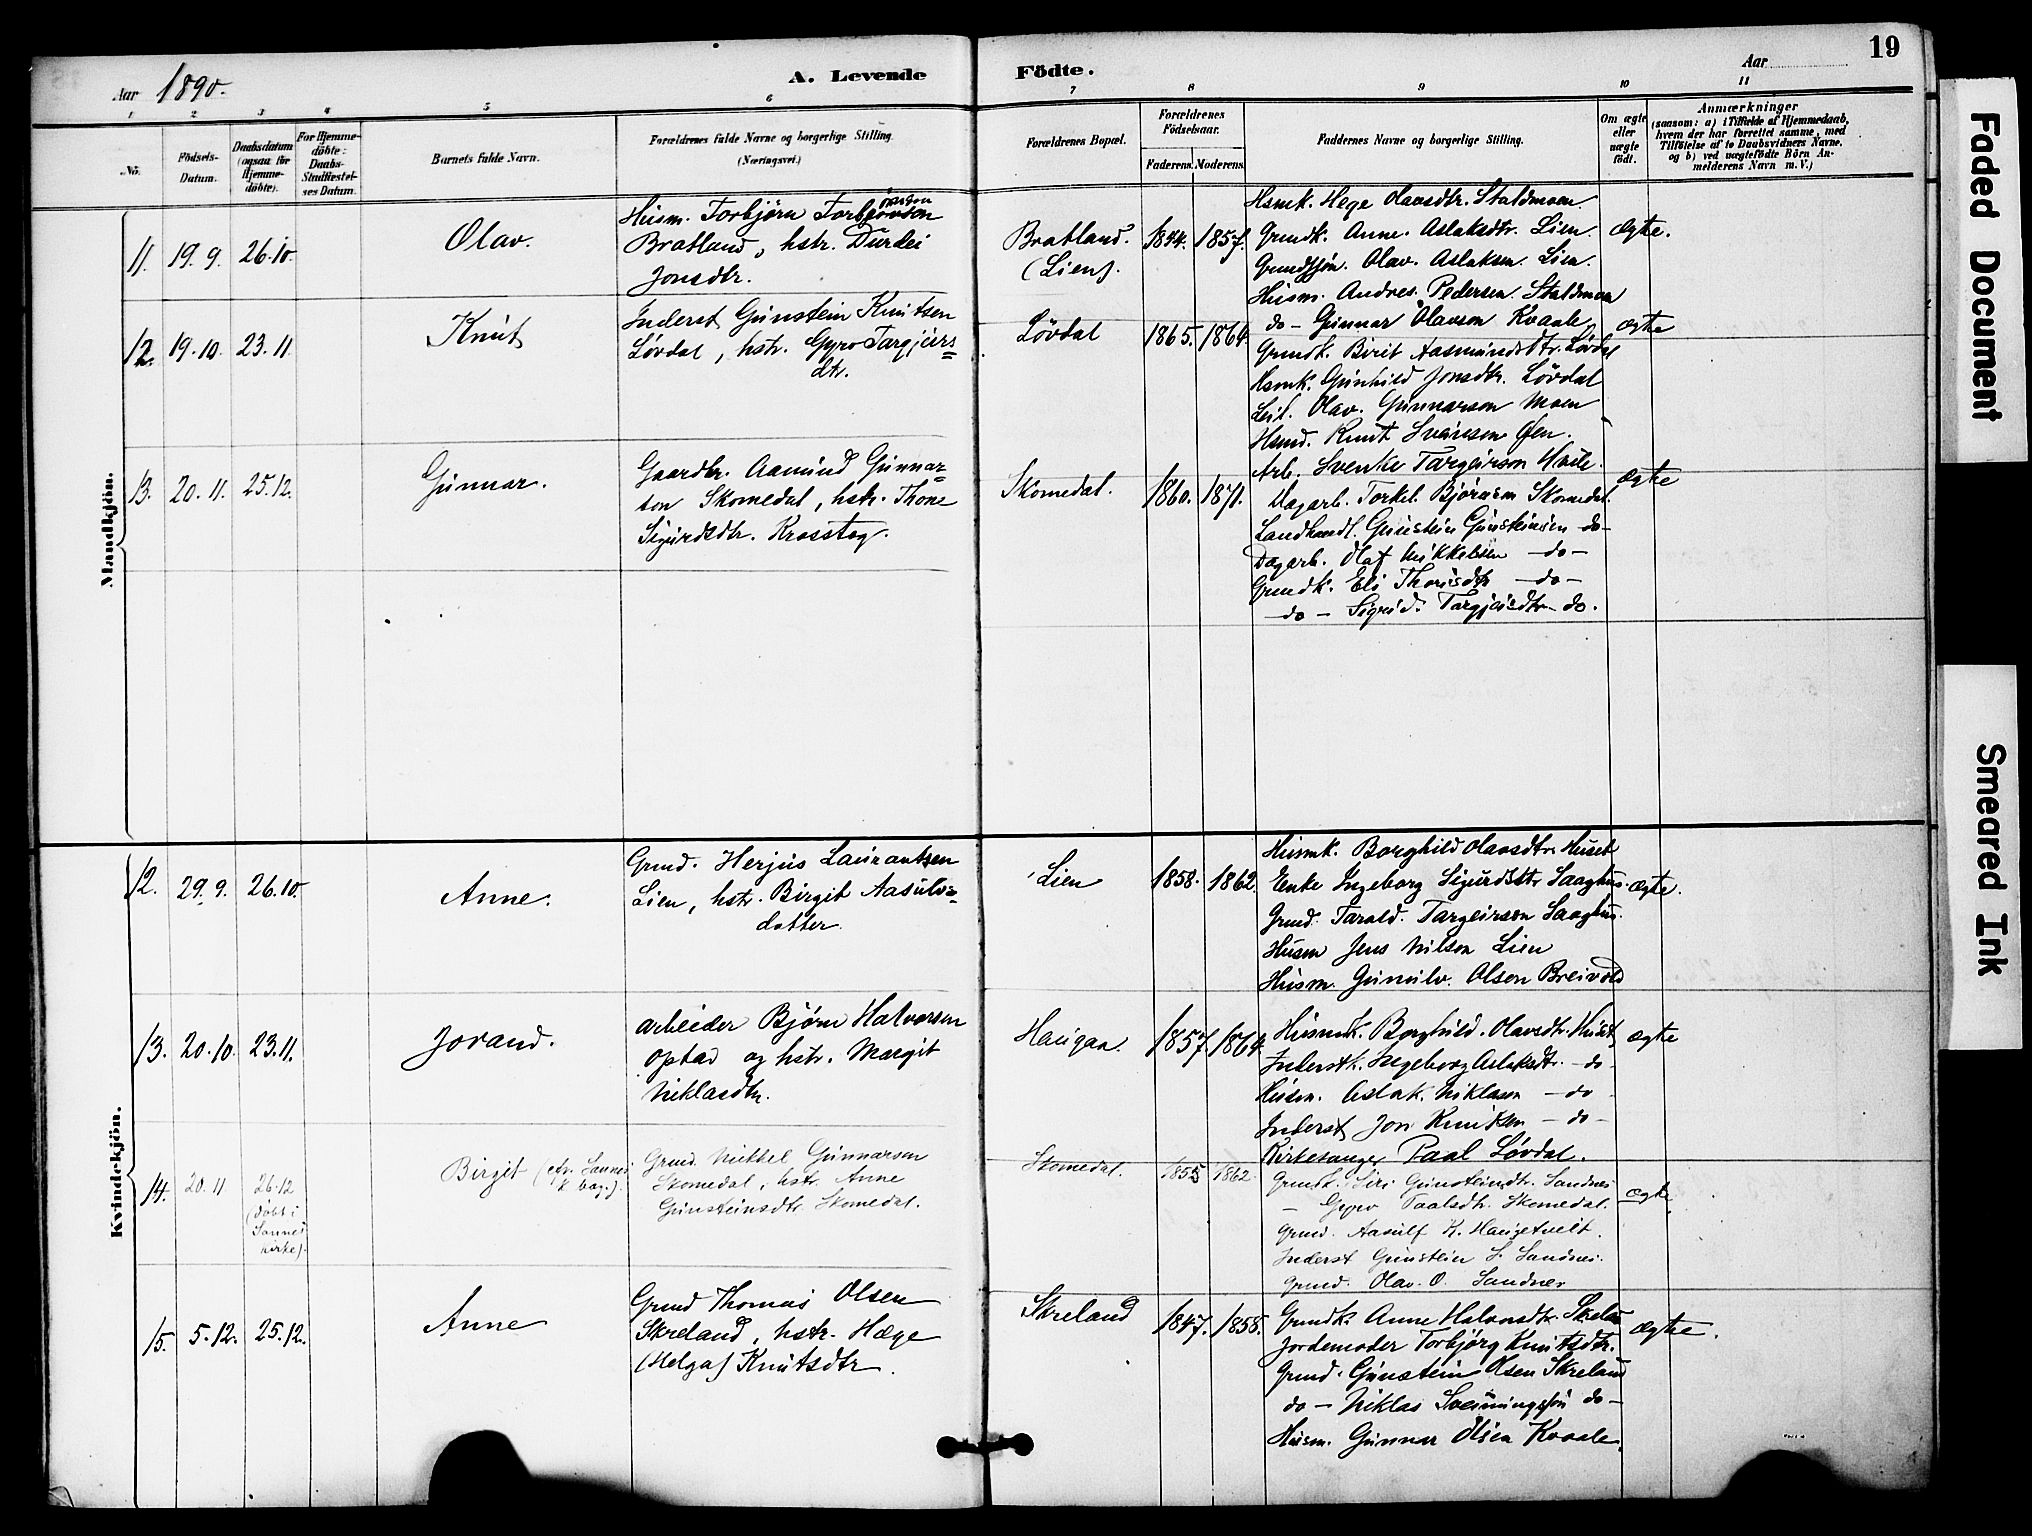 19
Aar 1890.
A. Levende Födte.
Aar
1 2 3 4 5 6 7 8 9 10 11
No.
Födsels-Datum.
Daabsdatum (ogsaa för Hjemme-döbte).
For Hjemme-döbte: Daabs-Stadfæstel-ses Datum.
Barnets fulde Navn.
Forældrenes fulde Navne og borgerlige Stilling.
(Næringsvei.)
Forældrenes Bopæl.
Forældrenes Födselsaar.
Faderens. Moderens.
Faddernes Navne og borgerlige Stilling.
Om ægte eller uægte födt.
Anmærkninger
(saasom: a) i Tilfælde af Hjemmedaab,
hvem der har forrettet samme, med
Tilföielse af to Daabsvidners Navne,
og b) ved uægtefödte Börn An-
melderens Navn m. V.)
Mandkjön.
11. 19.9. 26.10. Olav.
Husm. Torbjörn Torbjörnson
Bratland, hstr. Durdei
Jonsdtr.
Bratland.
(Lien).
1844. 1857.
Hsmk. Hege Olavsdtr. Staldmoen.
Grundk. Anne. Aslaksdtr. Lien.
Olav. Aslaksen. Lien.
Husm. Andres. Pedersen. Staldmoen
do - Gunnar Olavson Kvaale
ægte.
12. 19.10. 23.11. Knut
Inderst Gunstein Knutsen
Lövdal, hstr. Gyro Targjeirs=
dtr.
Lövdal
1865. 1864.
Grundk. Birit Aasmundsdtr. Lövdal
Hsmk. Gunhild Jonsdtr. Lövdal
Leil. Olav. Gunnarson Moen
Hsmd. Knut Sveinson
Arb. Svenke Targeirson
ægte
13. 20.11. 25.12. Gunnar.
Gaardbr. Aamund Gunnar=
son Skomedal, hstr. Thone
Sigurdsdtr. Krosstog.
Skomedal.
1860. 1871.
Dagarb. Torkel. Björnsen Skomedal.
Landhandl. Gunstein Gunsteinsen - do -
Dagarb. Olaf Mikkelsen - do -
Grundk. Eli Thorisdtr - do -
- do - Sigrid. Targjeisdtr - do.
ægte
Kvindekjön.
12. 29.9. 26.10. Anne.
Grmd. Herjus Laurantsen
Lien, hstr. Birgit Aasulvs=
datter.
Lien
1858. 1862.
Husmk. Borghild Olavsdtr. Huset
Enke Ingeborg Sigurdsdtr Saaghus.
Grmd. Tarald. Targeirson Saaghus.
Husm Jens Nilson Lien
Husm. Gunnulv. Olson Breivold
ægte.
13. 20.10. 23.11. Jorand.
arbeider Björn Halvorsen
Optad og hstr. Margit
Niklasdtr.
Haugaa.
1857. 1864.
Husmk. Borghild. Olavsdtr. Huset
Inderstk. Ingeborg Aslaksdtr. - do -
Husm. Aslak. Niklason - do -
Inderst Jon Knutsen - do -
Kirkesanger Paal Lövdal.
ægte
14. 20.11. 26.12
(döbt i
Sannes
kirke).
Birgit (cfr. Sannes
k bog.).
Grmd. Mikkel Gunnarson
Skomedal, hstr. Anne
Gunsteinsdtr Skomedal.
Skomedal.
1855 1862.
Grmdk. Siri Gunsteinsdtr. Sandnes
- Gyro Paalsdtr. Skomedal.
Grmd. Aasulf K. Haugetveit.
Inderst Gunstein S. Sandnes.
Grmd. Olav. O. Sandnes
ægte
15. 5.12. 25.12. Anne
Grmd Thomas Olsen
Skreland, hstr. Hæge
(Helga) Knutsdtr.
Skreland
1847. 1858.
Grmdk. Anne Halvorsdtr. Skreland
Jordemoder Torbjörg Knutsdtr.
Grmd. Gunstein Olsen Skreland
do - Niklas do -
Husm. Gunnar Olsen Kvaale.
ægte.
Faded Document
Smeared Ink